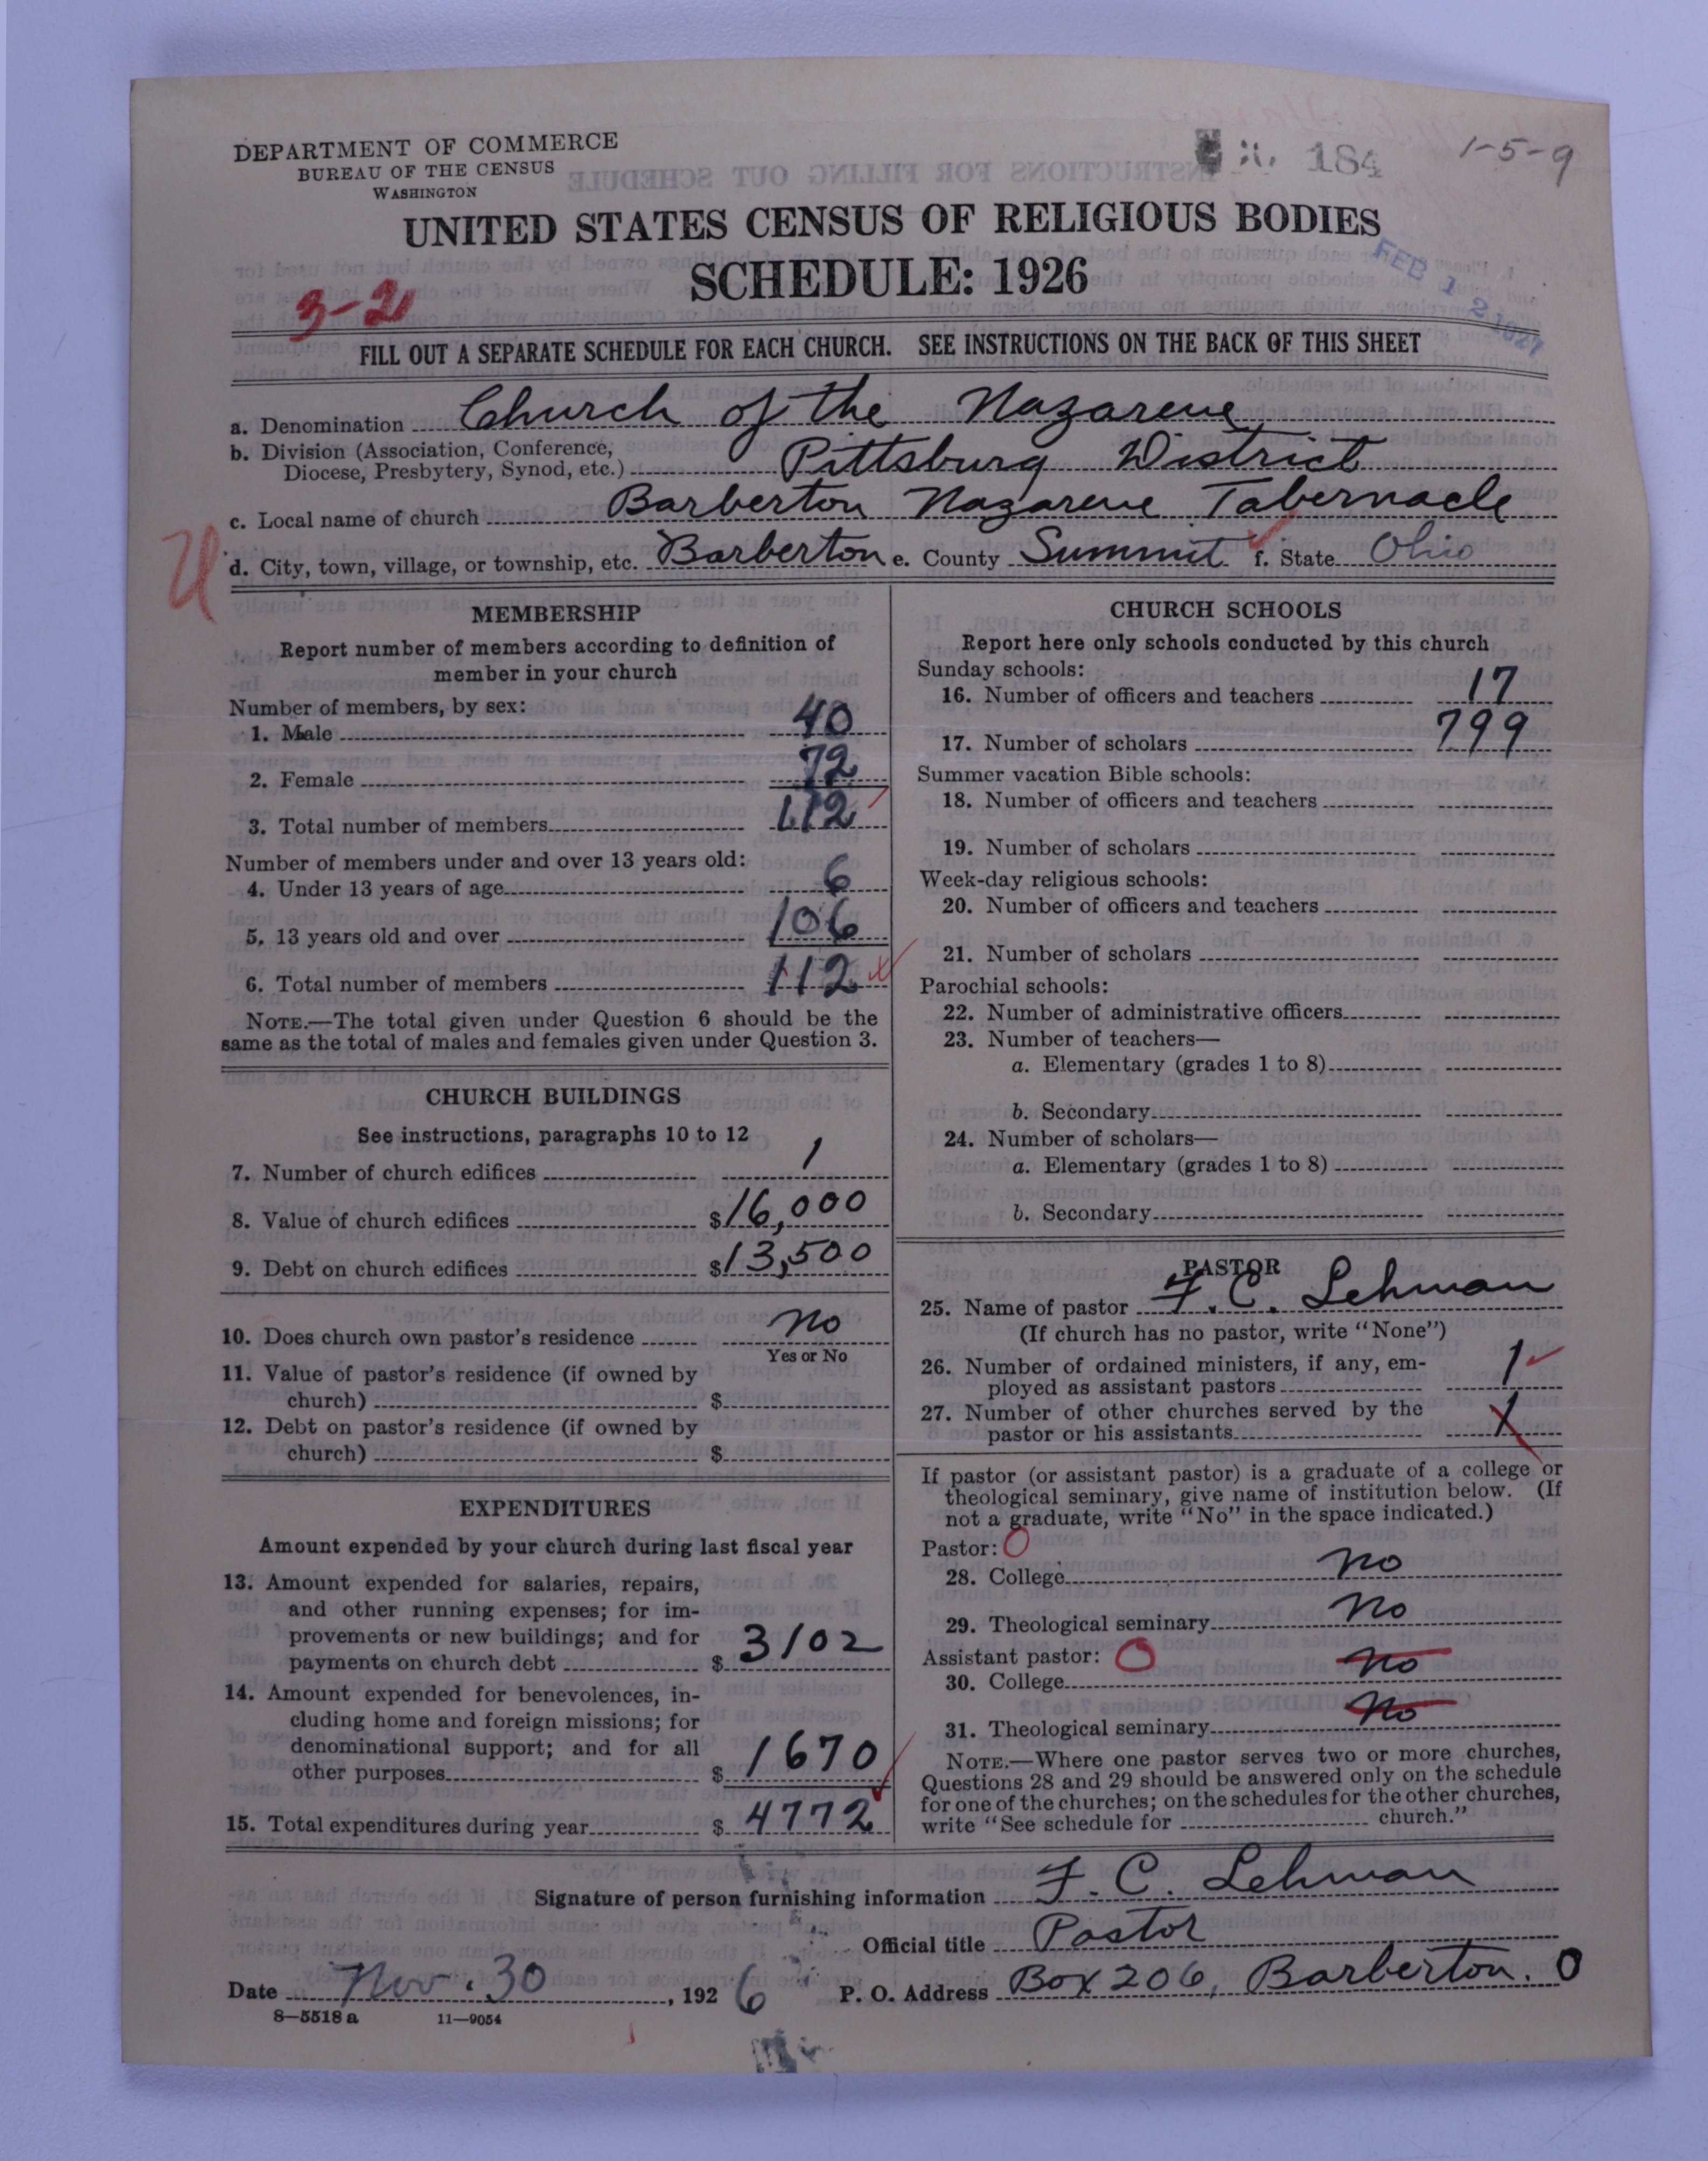 DEPARTMENT OF COMMERCE
BUREAU OF THE CENSUS
WASHINGTON
184
1-5-9
UNITED STATES CENSUS OF RELIGIOUS BODIES
SCHEDULE: 1926
3-2
FEB 12 1927
FILL OUT A SEPARATE SCHEDULE FOR EACH CHURCH. SEE INSTRUCTIONS ON THE BACK OF THIS SHEET
a. Denomination Church of the Nazarene
b. Division (Association, Conference,
Diocese, Presbytery, Synod, etc.) Pittsburg District
c. Local name of church Barberton Nazarene Tabernacle
U
d. City, town, village, or township, etc. Barberton e. County Summit f. State Ohio
MEMBERSHIP
Report number of members according to definition of
member in your church
Number of members, by sex:
1. Male 40
2. Female 72
3. Total number of members 112
Number of members under and over 13 years old:
4. Under 13 years of age 6
5. 13 years old and over 106
6. Total number of members 112
NOTE.—The total given under Question 6 should be the
same as the total of males and females given under Question 3.
CHURCH BUILDINGS
See instructions, paragraphs 10 to 12
7. Number of church edifices 1
8. Value of church edifices $16,000
9. Debt on church edifices $13,500
10. Does church own pastor's residence No
Yes or No
11. Value of pastor's residence (if owned by
church) $
12. Debt on pastor's residence (if owned by
church) $
EXPENDITURES
Amount expended by your church during last fiscal year
13. Amount expended for salaries, repairs,
and other running expenses; for im-
provements or new buildings; and for
payments on church debt $3102
14. Amount expended for benevolences, in-
cluding home and foreign missions; for
denominational support; and for all
other purposes $1670
15. Total expenditures during year $4772
CHURCH SCHOOLS
Report here only schools conducted by this church
Sunday schools:
16. Number of officers and teachers 17
17. Number of scholars 799
Summer vacation Bible schools:
18. Number of officers and teachers
19. Number of scholars
Week-day religious schools:
20. Number of officers and teachers
21. Number of scholars
Parochial schools:
22. Number of administrative officers
23. Number of teachers—
a. Elementary (grades 1 to 8)
b. Secondary
24. Number of scholars—
a. Elementary (grades 1 to 8)
b. Secondary
PASTOR
25. Name of pastor F. C. Lehman
(If church has no pastor, write "None")
26. Number of ordained ministers, if any, em-
ployed as assistant pastors 1
27. Number of other churches served by the
pastor or his assistants 1
If pastor (or assistant pastor) is a graduate of a college or
theological seminary, give name of institution below. (If
not a graduate, write "No" in the space indicated.)
Pastor: O
28. College No
29. Theological seminary No
Assistant pastor: O
30. College No
31. Theological seminary No
NOTE.—Where one pastor serves two or more churches,
Questions 28 and 29 should be answered only on the schedule
for one of the churches; on the schedules for the other churches,
write "See schedule for church."
Signature of person furnishing information F. C. Lehman
Official title Pastor
Date Nov. 30, 1926 P. O. Address Box 206, Barberton. O
8—5518 a 11—9054